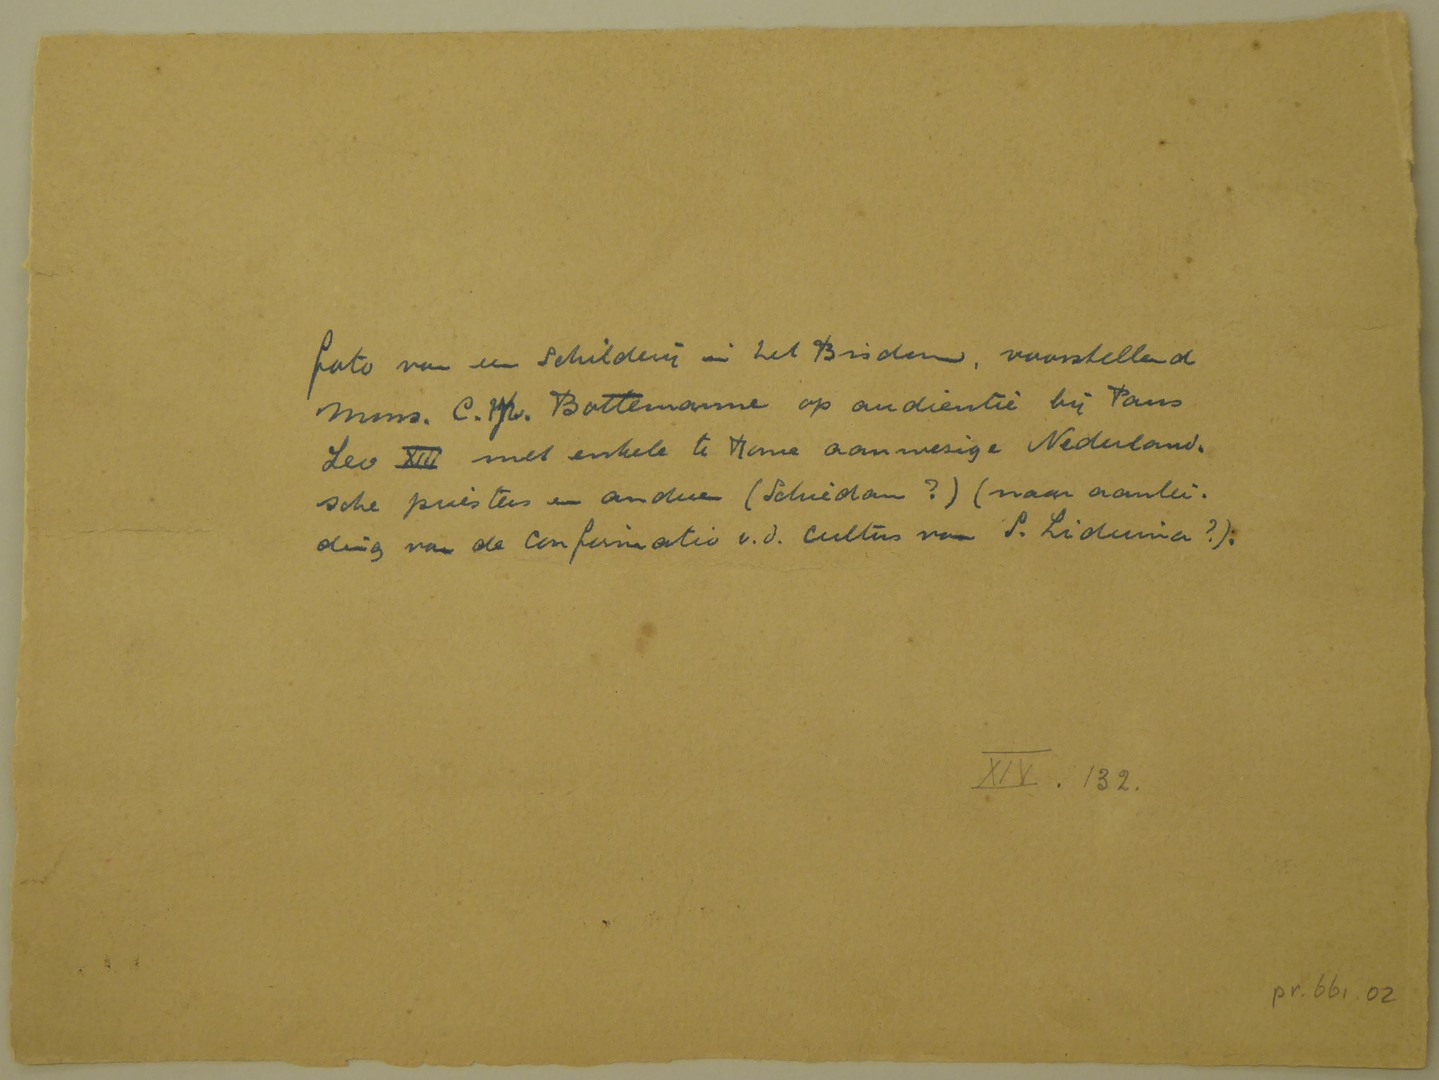 foto van een schilderij in het Bisdom, voorstellend
Mons. C. Bottemanne op audientie bij Paus
Leo XIII met enkele te Rome aanwesige Nederland-
sche priesters en andere (Schiedam ?) (naar aanlei-
ding van de confirmatio v.d. cultus van S. Liduina ?).
XIV . 132.
pr. 661.02